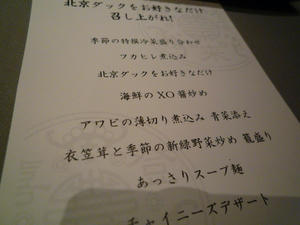 北京ダックをお好きなだけ
召し上がれ!
季節の特撰冷菜盛り合わせ
フカヒレ煮込み
北京ダックをお好きなだけ
海鮮のXO醤炒め
アワビの薄切り煮込み 青菜添え
衣笠茸と季節の新緑野菜炒め 籠盛り
あっさりスープ麺
チャイニーズデザート